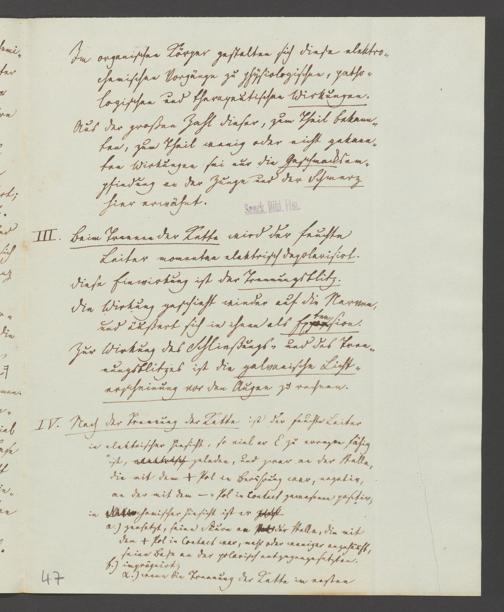 Im organischen Körper gestalten sich diese elektro-
chemischen Vorgänge zu physiologischen, patho-
logischen und therapeutischen Wirkungen.
Aus der großen Zahl dieser, zum Theil bekann-
ten, zum Theil wenig oder nicht gekann-
ten Wirkungen sei nur die Geschmacksem-
pfindung an der Zunge und der Schmerz
hier erwähnt.
Senck. Bibl. Ffm.
III. Beim Trennen der Kette wird der feuchte
Leiter momentan elektrisch depolarisirt.
Diese Einwirkung ist der Trennungsblitz.
Die Wirkung geschieht wieder auf die Nerven,
und äußert sich in ihnen als
Zur Wirkung des Schließungs- und des Tren-
nungsblitzes ist die galvanische Licht-
erscheinung vor den Augen zu rechnen.
IV. Nach der Trennung der Kette ist der feuchte Leiter
in elektrischer Hinsicht, so viel er E zu erregen fähig
ist, geladen, und zwar an der Stelle,
die mit dem + Pol in Berührung war, negativ,
an der mit dem – Pol in Contact gewesenen positiv,
in chemischer Hinsicht ist er
a.) zersetzt, seine Säure an der Stelle, die mit
dem + Pol in Contact war, mehr oder weniger angehäuft,
seine Base an der polarisch entgegengesetzten.
b.)
α.) wenn die Trennung der Kette im ersten
47